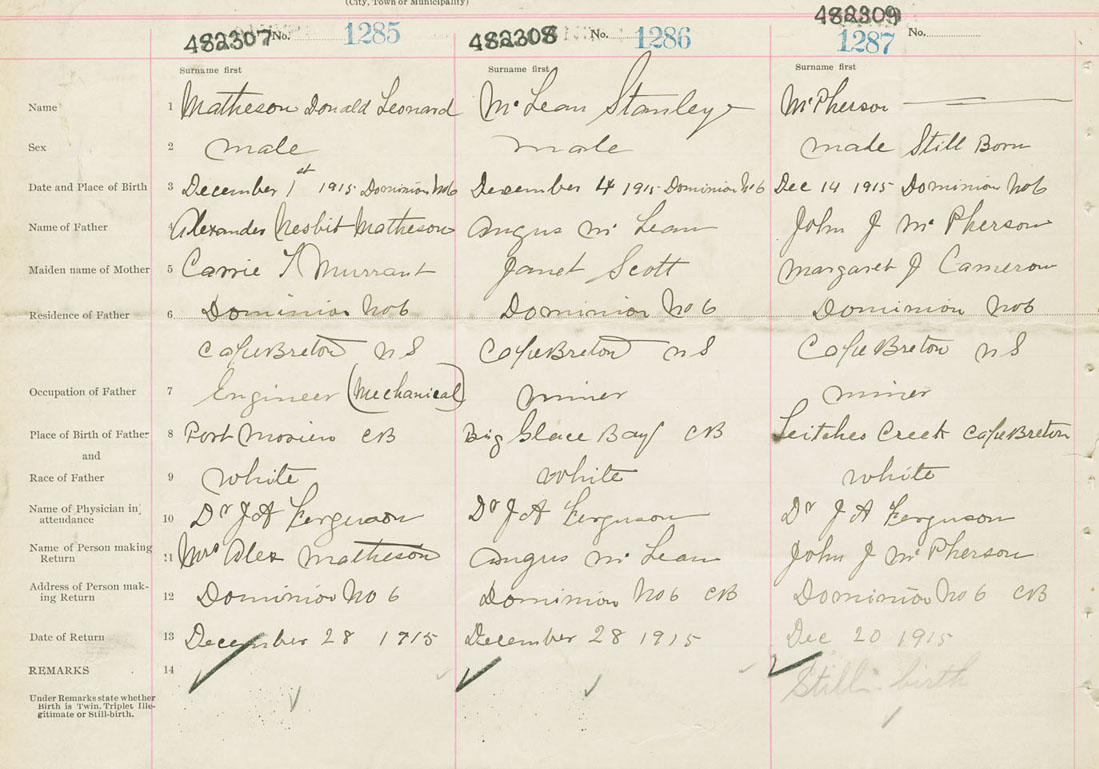 (City, Town or Municipality)
482307 No. 1285 482308 No. 1286 482309 1287 No.
Surname first Surname first Surname first
Name 1 Matheson Donald Leonard McLean Stanley McPherson
Sex 2 male male male Still Born
Date and Place of Birth 3 December 1st 1915 Dominion No6 December 4 1915 Dominion No 6 Dec 14 1915 Dominion No6
Name of Father 4 Alexander Nesbit Matheson Angus Mc Lean John J Mc Pherson
Maiden name of Mother 5 Carrie Murrant Janet Scott Margaret J Cameron
Residence of Father 6 Dominion No6 Dominion No 6 Dominion No6
Cape Breton NS Cape Breton NS Cape Breton NS
Occupation of Father 7 Engineer (Mechanical) miner miner
Place of Birth of Father 8 Port Morien CB Big Glace Bay CB Leitches Creek Cape Breton
and
Race of Father 9 white white white
Name of Physician in attendance 10 Dr J A Ferguson Dr J A Ferguson Dr J A Ferguson
Name of Person making Return 11 Mrs Alex Matheson Angus Mc Lean John J Mc Pherson
Address of Person making Return 12 Dominion No 6 Dominion No 6 CB Dominion No 6 CB
Date of Return 13 December 28 1915 December 28 1915 Dec 20 1915
REMARKS 14 Still birth
Under Remarks state whether
Birth is Twin, Triplet Ille-
gitimate or Still-birth.